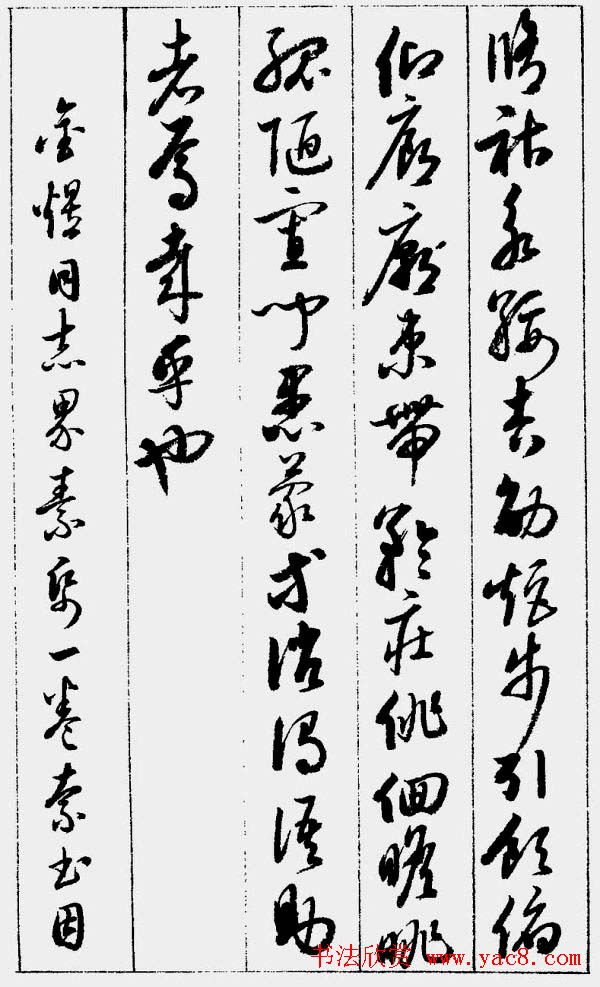 脩祜永綏吉劭矩步引領俯
仰廊廟束帶矜莊徘徊瞻眺
孤陋寡聞愚蒙等誚謂語助
者焉哉乎也
同志畀素帋一卷索書因
书法欣赏 www.yac8.com